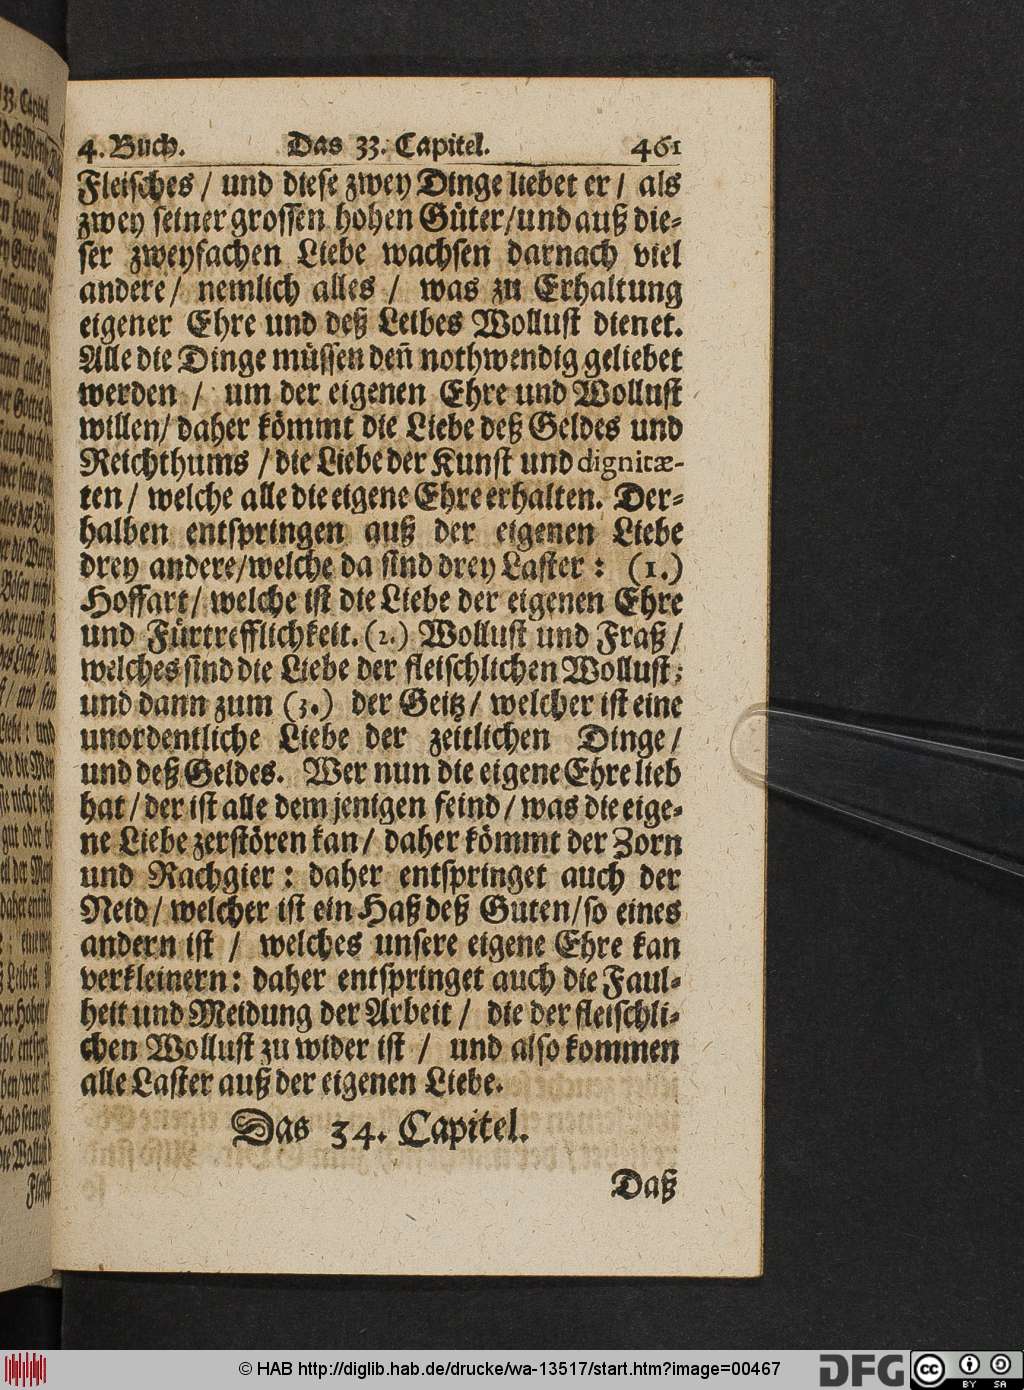 4. Buch. Das 33. Capitel. 461
Fleisches / und diese zwey Dinge liebet er / als
zwey seiner grossen hohen Güter/und auß die-
ser zweyfachen Liebe wachsen darnach viel
andere / nemlich alles / was zu Erhaltung
eigener Ehre und deß Leibes Wollust dienet.
Alle die Dinge müssen deñ nothwendig geliebet
werden / um der eigenen Ehre und Wollust
willen/ daher kömmt die Liebe deß Geldes und
Reichthums / die Liebe der Kunst und dignitæ-
ten / welche alle die eigene Ehre erhalten. Der-
halben entspringen auß der eigenen Liebe
drey andere/welche da sind drey Laster : (1.)
Hoffart/ welche ist die Liebe der eigenen Ehre
und Fürtrefflichkeit. (2.) Wollust und Fraß /
welches sind die Liebe der fleischlichen Wollust;
und dann zum (3.) der Geitz / welcher ist eine
unordentliche Liebe der zeitlichen Dinge /
und deß Geldes. Wer nun die eigene Ehre lieb
hat / der ist alle dem jenigen feind / was die eige-
ne Liebe zerstören kan / daher kömmt der Zorn
und Rachgier : daher entspringet auch der
Neid / welcher ist ein Haß deß Guten/so eines
andern ist / welches unsere eigene Ehre kan
verkleinern: daher entspringet auch die Faul-
heit und Meidung der Arbeit / die der fleischli-
chen Wollust zu wider ist / und also kommen
alle Laster auß der eigenen Liebe.
Das 34. Capitel.
Daß
© HAB http://diglib.hab.de/drucke/wa-13517/start.htm?image=00467
DFG
cc BY SA